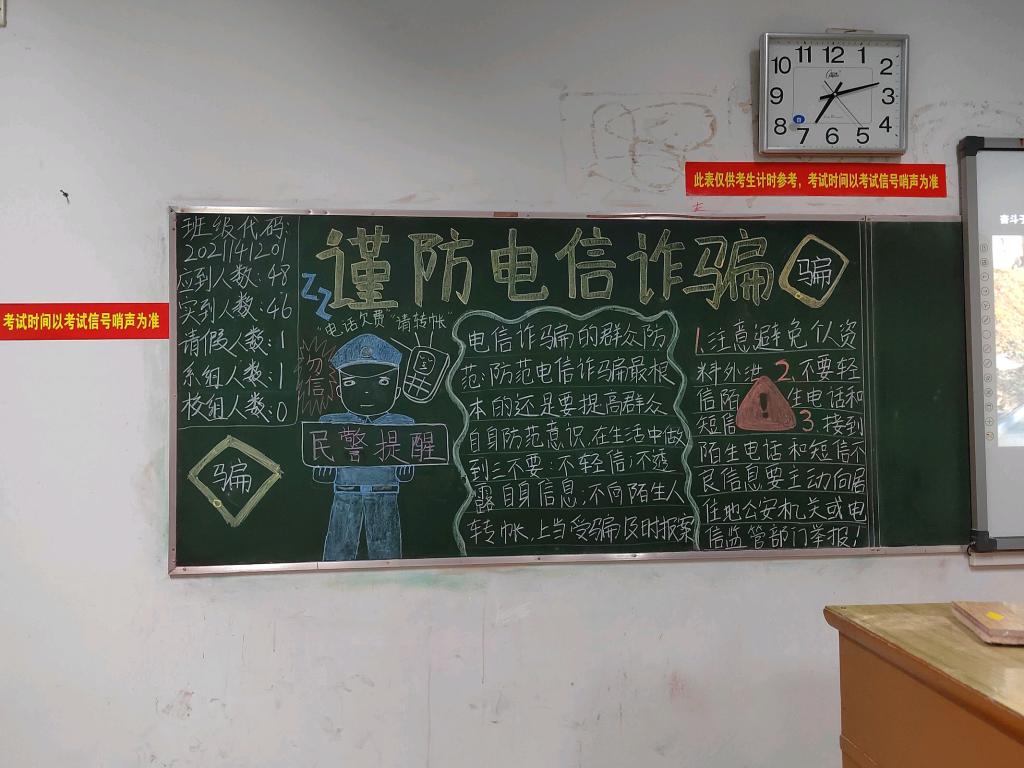 12
11
1
10
2
9
3
8
4
7
6
5
此表仅供考生计时参考，考试时间以考试信号哨声为准
考试时间以考试信号哨声为准
班级代码:
2021141201
应到人数:48
实到人数:46
请假人数:1
系组人数:1
校组人数:0
骗
谨防电信诈骗
骗
ZZ
"电话欠费""请转帐"
勿信
民警提醒
电信诈骗的群众防
范:防范电信诈骗最根
本的还是要提高群众
自身防范意识,在生活中做
到三不要:不轻信;不透
露自身信息;不向陌生人
转帐,上当受骗及时报案
1.注意避免个人资
料外泄 2.不要轻
信陌生电话和
短信 3.接到
陌生电话和短信不
民信息要主动向居
住地公安机关或电
信监管部门举报!
奋斗